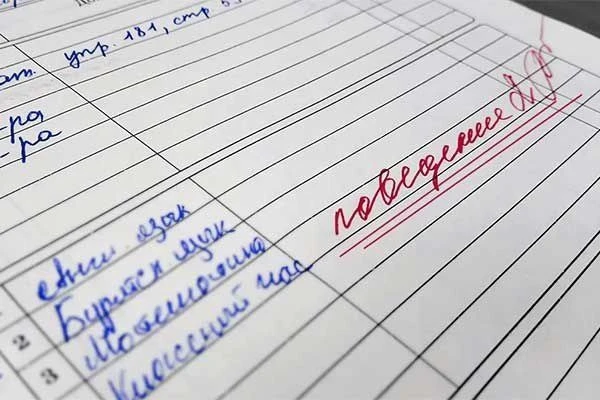 упр. 181, стр. 5
-ра
-ра
поведение
Англ язык
2 Бурятск язык
3 Математика
Классный час